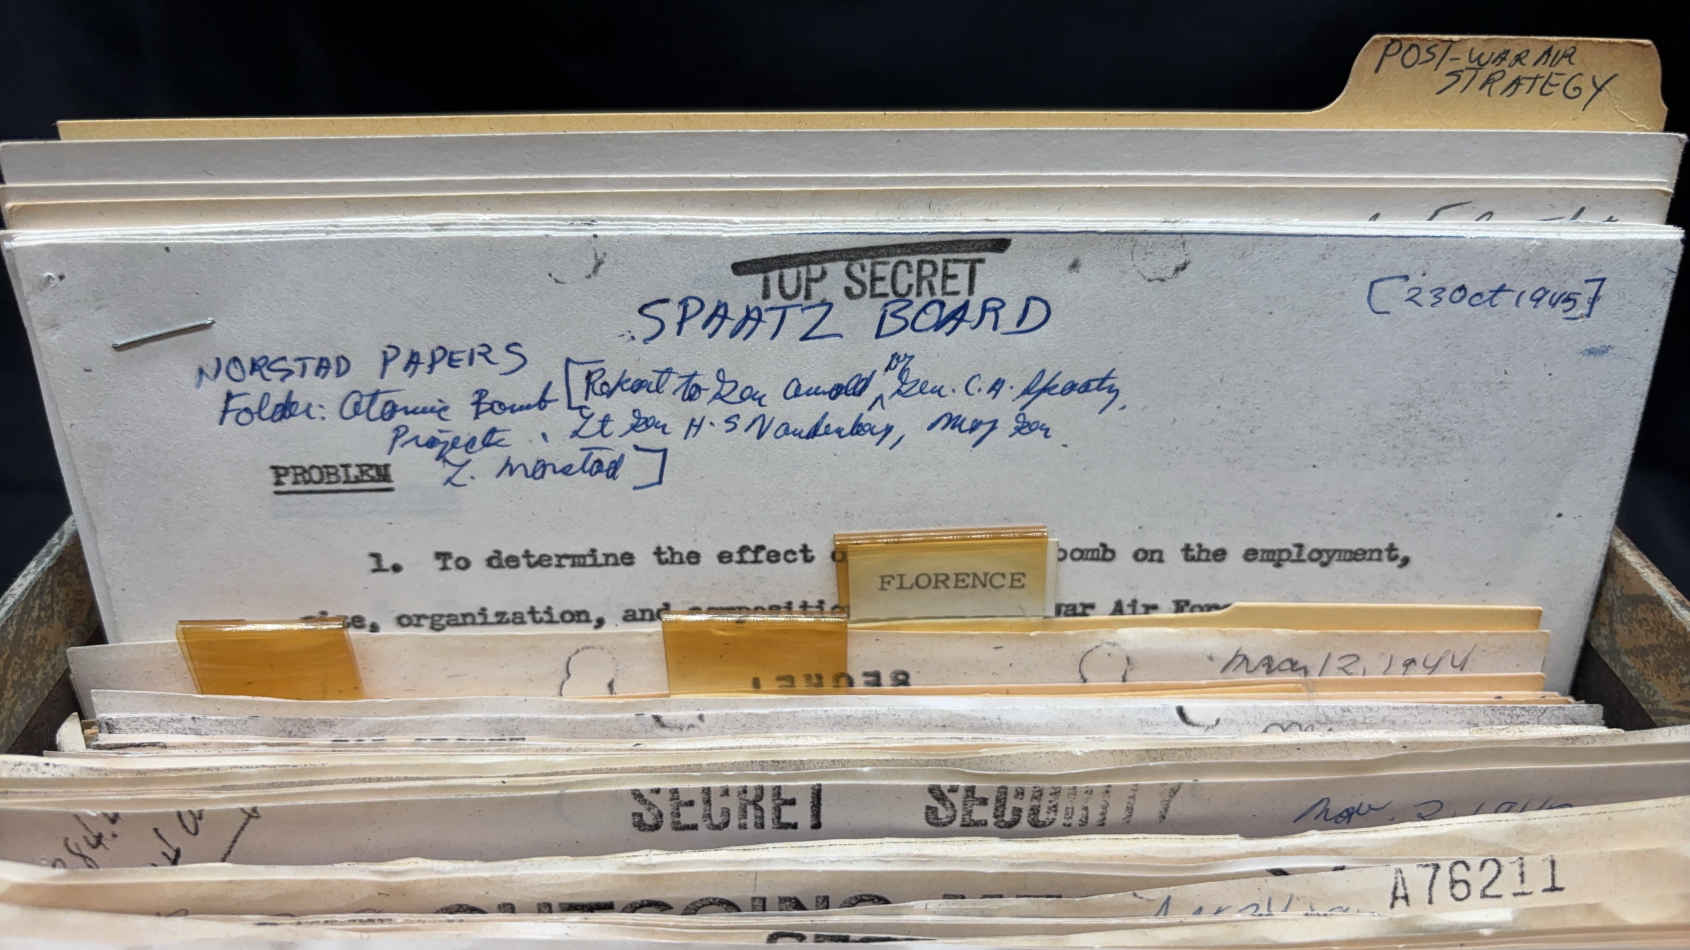 POST-WAR AIR
STRATEGY
TOP SECRET
[23 Oct 1945]
SPAATZ BOARD
NORSTAD PAPERS
Folder: Atomic Bomb [Report to Gen Arnold by Gen. C.A. Spaatz,
Projects. Lt Gen H.S Vandenberg, Maj Gen
L. Norstad]
PROBLEM
1. To determine the effect bomb on the employment,
size, organization, and composition war Air
FLORENCE
May 12, 1944
SECRET SECURITY
Nov. 2,
A76211